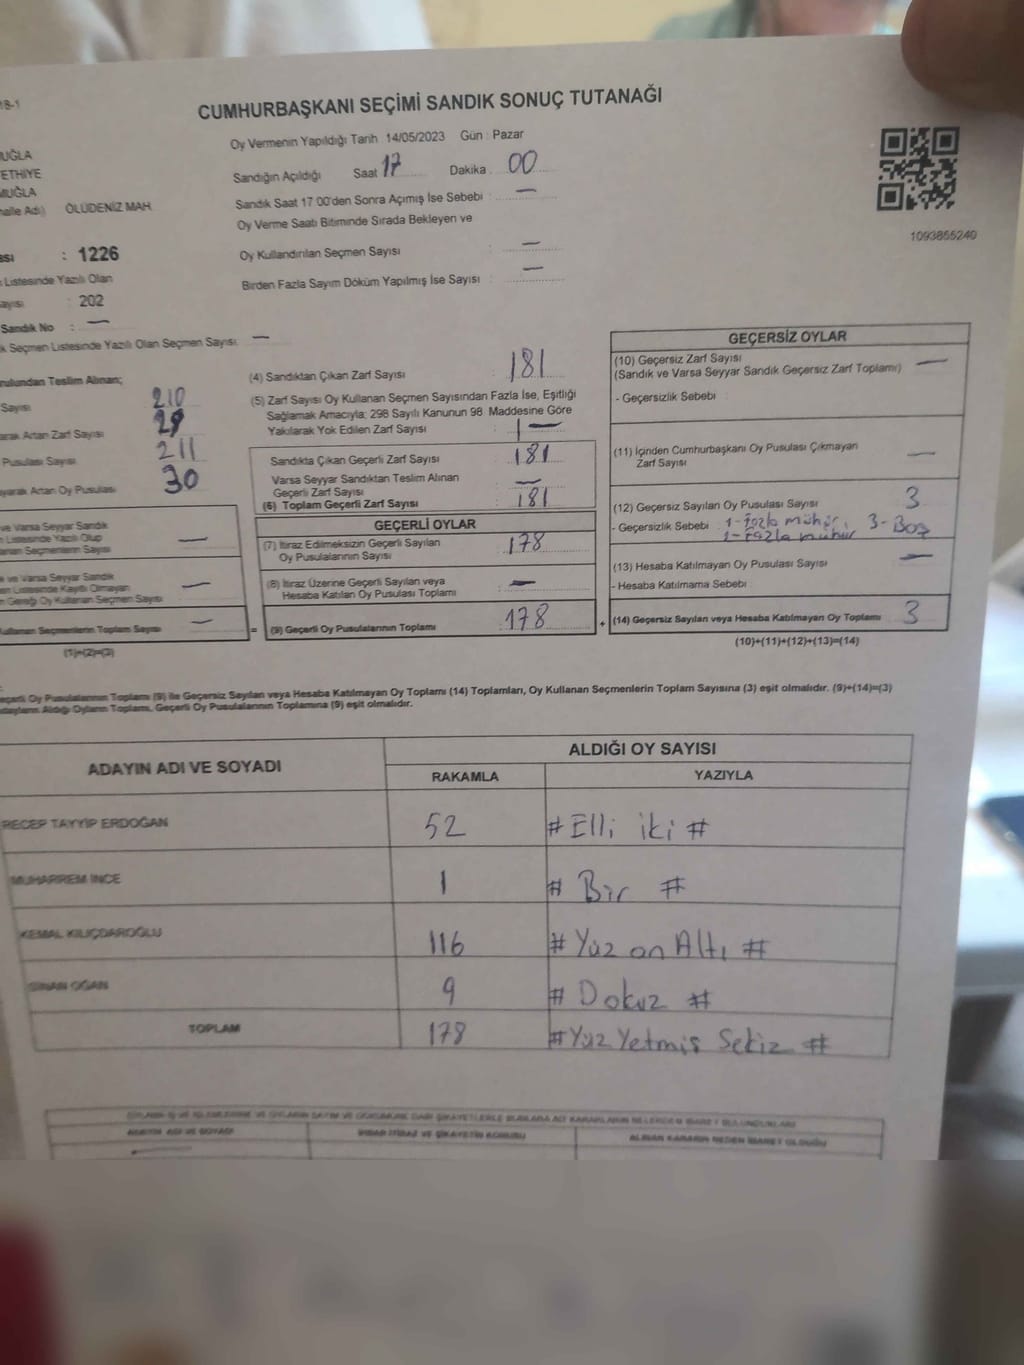 18-1
CUMHURBAŞKANI SEÇİMİ SANDIK SONUÇ TUTANAĞI
Oy Vermenin Yapıldığı Tarih 14/05/2023 Gün : Pazar
Sandığın Açıldığı Saat 17 Dakika 00
Sandık Saat 17 00'den Sonra Açımış İse Sebebi : —
Oy Verme Saati Bitiminde Sırada Bekleyen ve
Oy Kullandırılan Seçmen Sayısı : —
Birden Fazla Sayım Döküm Yapılmış İse Sayısı : —
1093855240
UĞLA
ETHİYE
MUĞLA
halle Adı) ÖLÜDENİZ MAH.
ası : 1226
Listesinde Yazılı Olan
ayısı : 202
Sandık No : —
k Seçmen Listesinde Yazılı Olan Seçmen Sayısı : —
rulundan Teslim Alınan;
Sayısı 210
arak Artan Zarf Sayısı 29
Pusulası Sayısı 211
ayarak Artan Oy Pusulası 30
ve Varsa Seyyar Sandık
n Listesinde Yazılı Olup
anan Seçmenlerin Sayısı —
ve Varsa Seyyar Sandık
en Listesinde Kayıtlı Olmayan
n Gereği Oy Kullanan Seçmen Sayısı —
Kullanan Seçmenlerin Toplam Sayısı —
(1)+(2)=(3)
(4) Sandıktan Çıkan Zarf Sayısı : 181
(5) Zarf Sayısı Oy Kullanan Seçmen Sayısından Fazla İse, Eşitliği
Sağlamak Amacıyla; 298 Sayılı Kanunun 98. Maddesine Göre
Yakılarak Yok Edilen Zarf Sayısı : —
Sandıkta Çıkan Geçerli Zarf Sayısı : 181
Varsa Seyyar Sandıktan Teslim Alınan
Geçerli Zarf Sayısı : —
(6) Toplam Geçerli Zarf Sayısı : 181
GEÇERLİ OYLAR
(7) İtiraz Edilmeksizin Geçerli Sayılan
Oy Pusulalarının Sayısı : 178
(8) İtiraz Üzerine Geçerli Sayılan veya
Hesaba Katılan Oy Pusulası Toplamı : —
= (9) Geçerli Oy Pusulalarının Toplamı : 178
GEÇERSİZ OYLAR
(10) Geçersiz Zarf Sayısı
(Sandık ve Varsa Seyyar Sandık Geçersiz Zarf Toplamı) —
- Geçersizlik Sebebi :
(11) İçinden Cumhurbaşkanı Oy Pusulası Çıkmayan
Zarf Sayısı —
(12) Geçersiz Sayılan Oy Pusulası Sayısı 3
- Geçersizlik Sebebi : 1-Fazla mühür, 3-Boş
2-Fazla mühür
(13) Hesaba Katılmayan Oy Pusulası Sayısı —
- Hesaba Katılmama Sebebi :
+ (14) Geçersiz Sayılan veya Hesaba Katılmayan Oy Toplamı 3
(10)+(11)+(12)+(13)=(14)
eçerli Oy Pusulalarının Toplamı (9) ile Geçersiz Sayılan veya Hesaba Katılmayan Oy Toplamı (14) Toplamları, Oy Kullanan Seçmenlerin Toplam Sayısına (3) eşit olmalıdır. (9)+(14)=(3)
adayların Aldığı Oyların Toplamı, Geçerli Oy Pusulalarının Toplamına (9) eşit olmalıdır.
ADAYIN ADI VE SOYADI ALDIĞI OY SAYISI
RAKAMLA YAZIYLA
RECEP TAYYİP ERDOĞAN 52 # Elli iki #
MUHARREM İNCE 1 # Bir #
KEMAL KILIÇDAROĞLU 116 # Yüz on Altı #
SİNAN OĞAN 9 # Dokuz #
TOPLAM 178 # Yüz Yetmiş Sekiz #
ADAYIN ADI VE SOYADI İHBAR İTİRAZ VE ŞİKAYETİN KONUSU ALINAN KARARIN NEDEN İBARET OLDUĞU